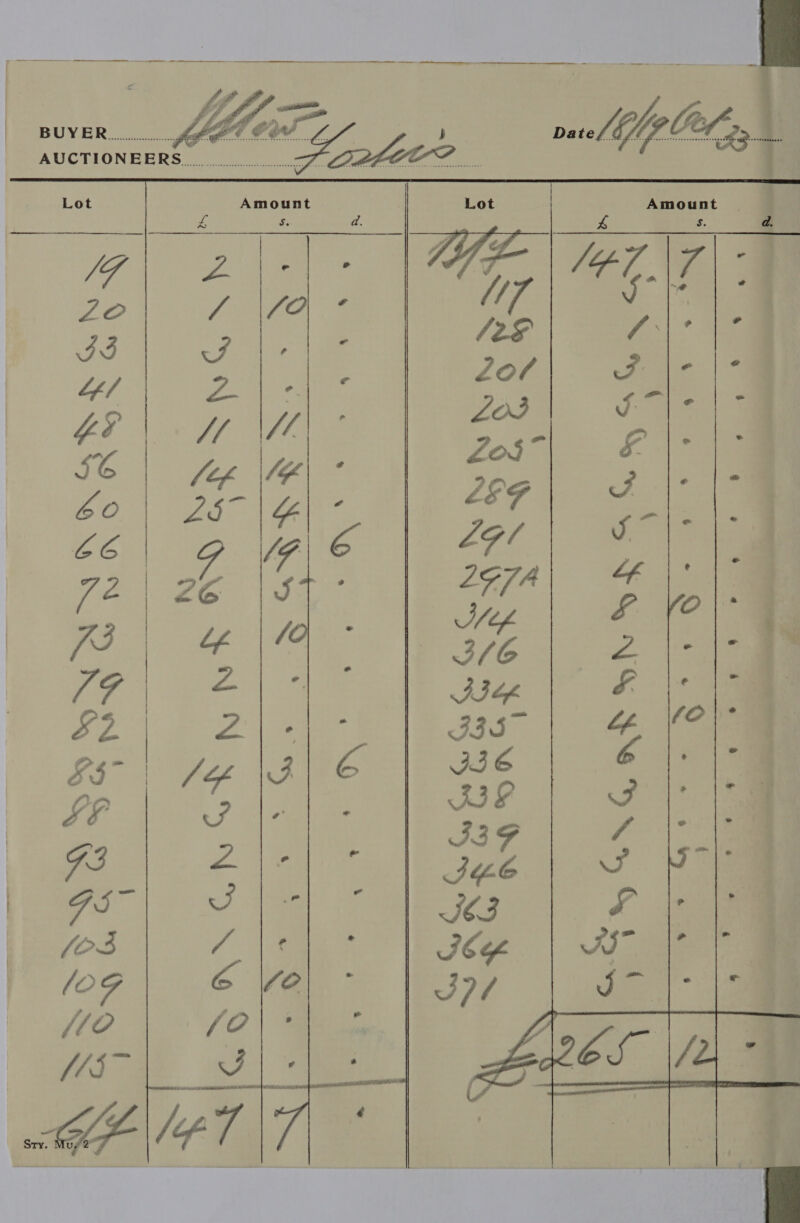 BUYER
AUCTIONEERS
Date
Lot Amount
£ s. d.
19 2 - -
20 1 10 -
33 3 - -
41 2 - -
48 11 11 -
56 14 14 -
60 25 4 -
66 9 19 6
72 26 5 -
73 4 10 -
79 2 - -
82 2 - -
85 14 3 6
88 3 - -
93 2 - -
95 3 - -
103 1 - -
109 6 10 -
110 10 - -
115 3 - -
C/F 147 7 -
STY. MU. 2
Lot Amount
£ s. d.
B/F 147 7 -
117 5 - -
128 1 - -
201 3 - -
203 5 - -
205 8 - -
289 3 - -
291 5 - -
297A 4 - -
314 8 10 -
316 2 - -
334 8 - -
335 4 10 -
336 6 - -
338 3 - -
339 1 - -
346 3 5 -
363 8 - -
364 35 - -
371 5 - -
£265 12 -